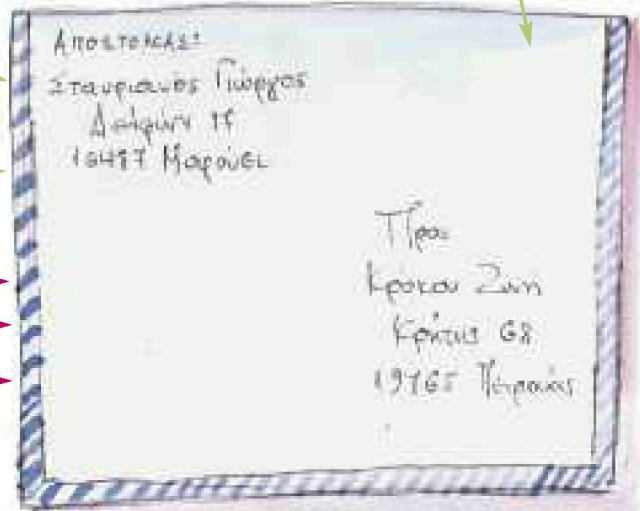 ΑΠΟΣΤΟΛΕΑΣ:
Σταυριανός Γιώργος
17
Μαρούσι
Προς
Κρόκου Ζωή
Κρήτης 68
19765 Πειραιάς